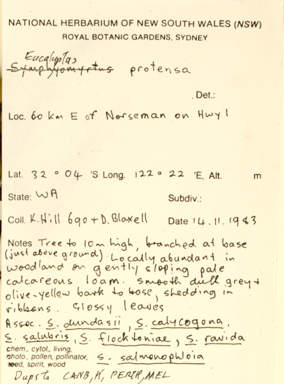 NATIONAL HERBARIUM OF NEW SOUTH WALES (NSW)
ROYAL BOTANIC GARDENS, SYDNEY
Eucalyptus
Symphyomyrtus protensa
Det.:
Loc. 60 km E of Norseman on Hwy 1
Lat. 32° 04 'S Long. 122° 22 'E, Alt. m
State: WA Subdiv.:
Coll. K. Hill 690 + D. Blaxell Date 14.11.1983
Notes Tree to 10m high, branched at base
(just above ground). Locally abundant in
woodland on gently sloping pale
calcareous loam. Smooth dull grey +
olive-yellow bark to base, shedding in
ribbons. Glossy leaves
Assoc. S. dundasii, S. calycogona,
S. salubris, S. flocktoniae, S. ravida
chem, cytol, living,
photo, pollen, pollinator, S. salmonophloia
seed, spirit, wood
Dups to CANB, K, PERTH, MEL